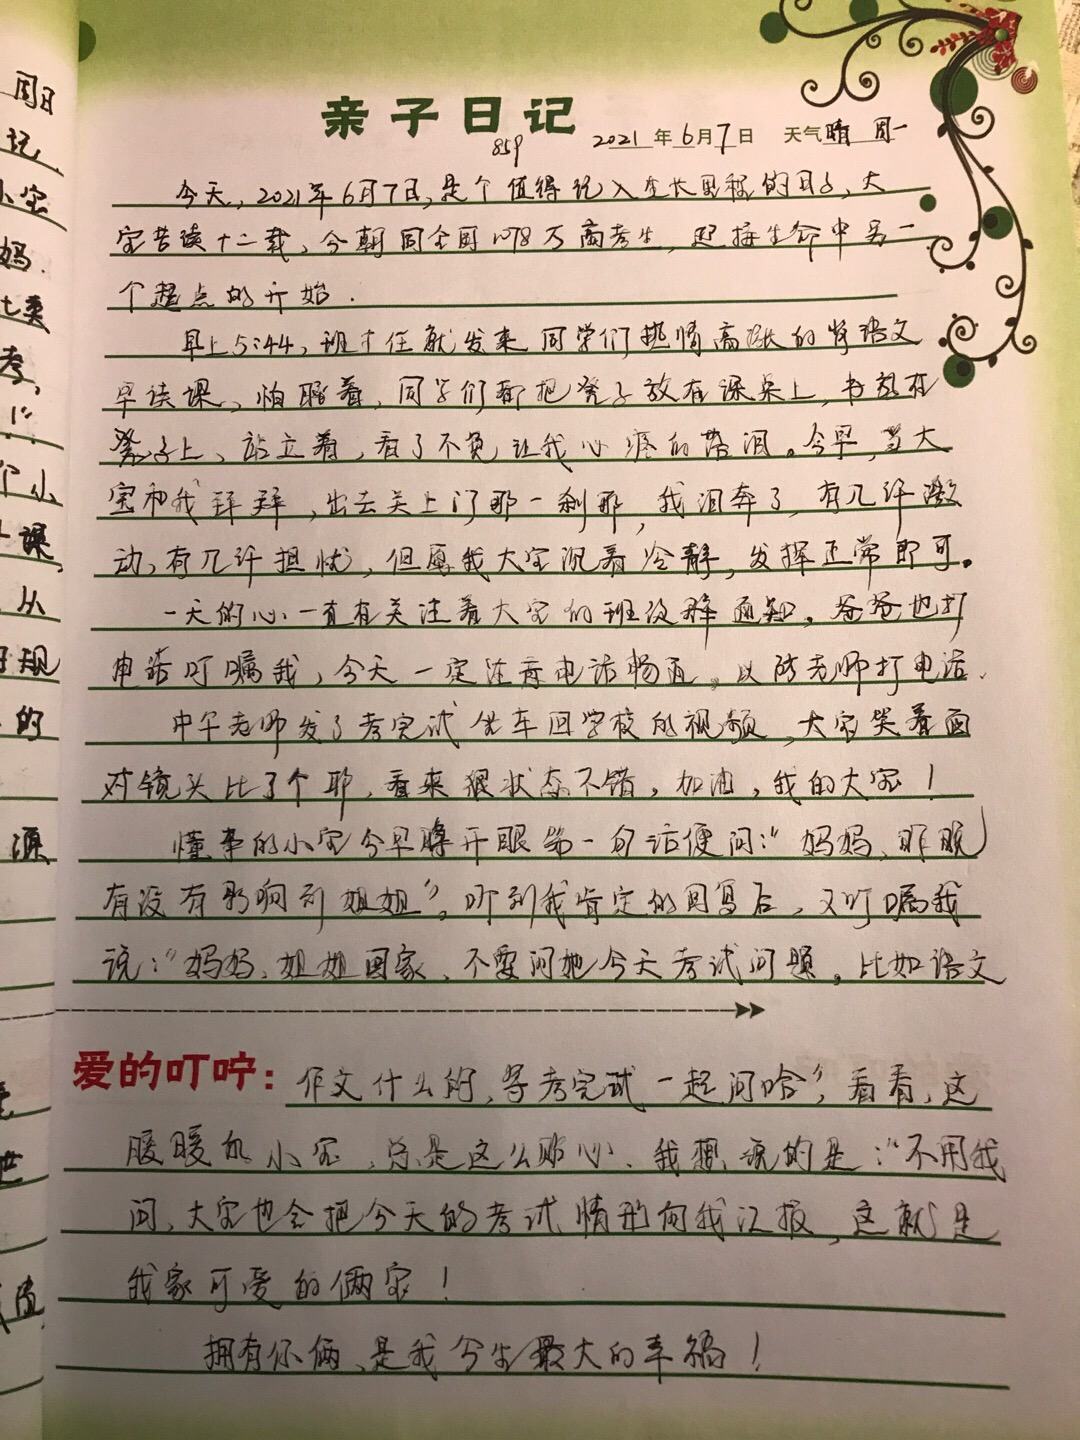 亲子日记
859
2021年6月7日 天气晴 周一
今天,2021年6月7日,是个值得记入生长里程的日子,大
宝苦读十二载,今朝同全国1078万高考生,迎接生命中另一
个起点的开始.
早上5:44,班主任就发来同学们热情高涨的背语文
早读课,怕瞌着,同学们都把凳子放在课桌上,书放在
凳子上,站立着,看了不免让我心疼的落泪。今早,当大
宝和我拜拜,出去关上门那一刹那,我泪奔了,有几许激
动,有几许担忧,但愿我大宝沉着冷静,发挥正常即可。
一天的心一直在关注着大宝的班级群通知,爸爸也打
电话叮嘱我,今天一定注意电话畅通。以防老师打电话.
中午老师发了考完试坐车回学校的视频,大宝笑着面
对镜头比了个耶,看来狠状态不错,加油,我的大宝!
懂事的小宝今早睁开眼第一句话便问:“妈妈,昨晚
有没有影响到姐姐”。听到我肯定的回复后,又叮嘱我
说:“妈妈,姐姐回家,不要问她今天考试问题,比如语文
爱的叮咛:作文什么的,等考完试一起问哈”,看看,这
暖暖的小宝,总是这么贴心.我想说的是:“不用我
问,大宝也会把今天的考试情形向我汇报,这就是
我家可爱的俩宝!
拥有你俩,是我今生最大的幸福!
周日
记
小宝
妈.
七类
考,
个小
课,
从
规
的
源